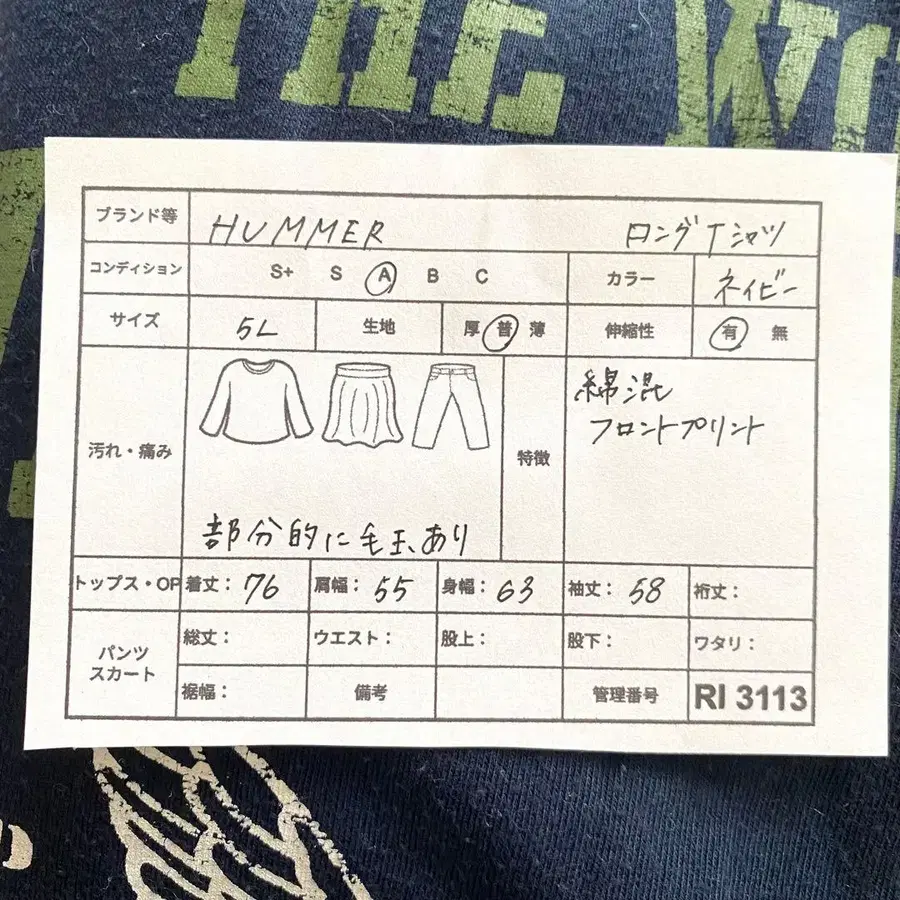 THE
ブランド等 HUMMER ロングTシャツ
コンディション S+ S A B C カラー ネイビー
サイズ 5L 生地 厚 普 薄 伸縮性 有 無
汚れ・痛み 部分的に毛玉あり 特徴 綿混
フロントプリント
トップス・OP 着丈： 76 肩幅： 55 身幅： 63 袖丈： 58 裄丈：
パンツ
スカート
総丈： ウエスト： 股上： 股下： ワタリ：
裾幅： 備考 管理番号 RI 3113